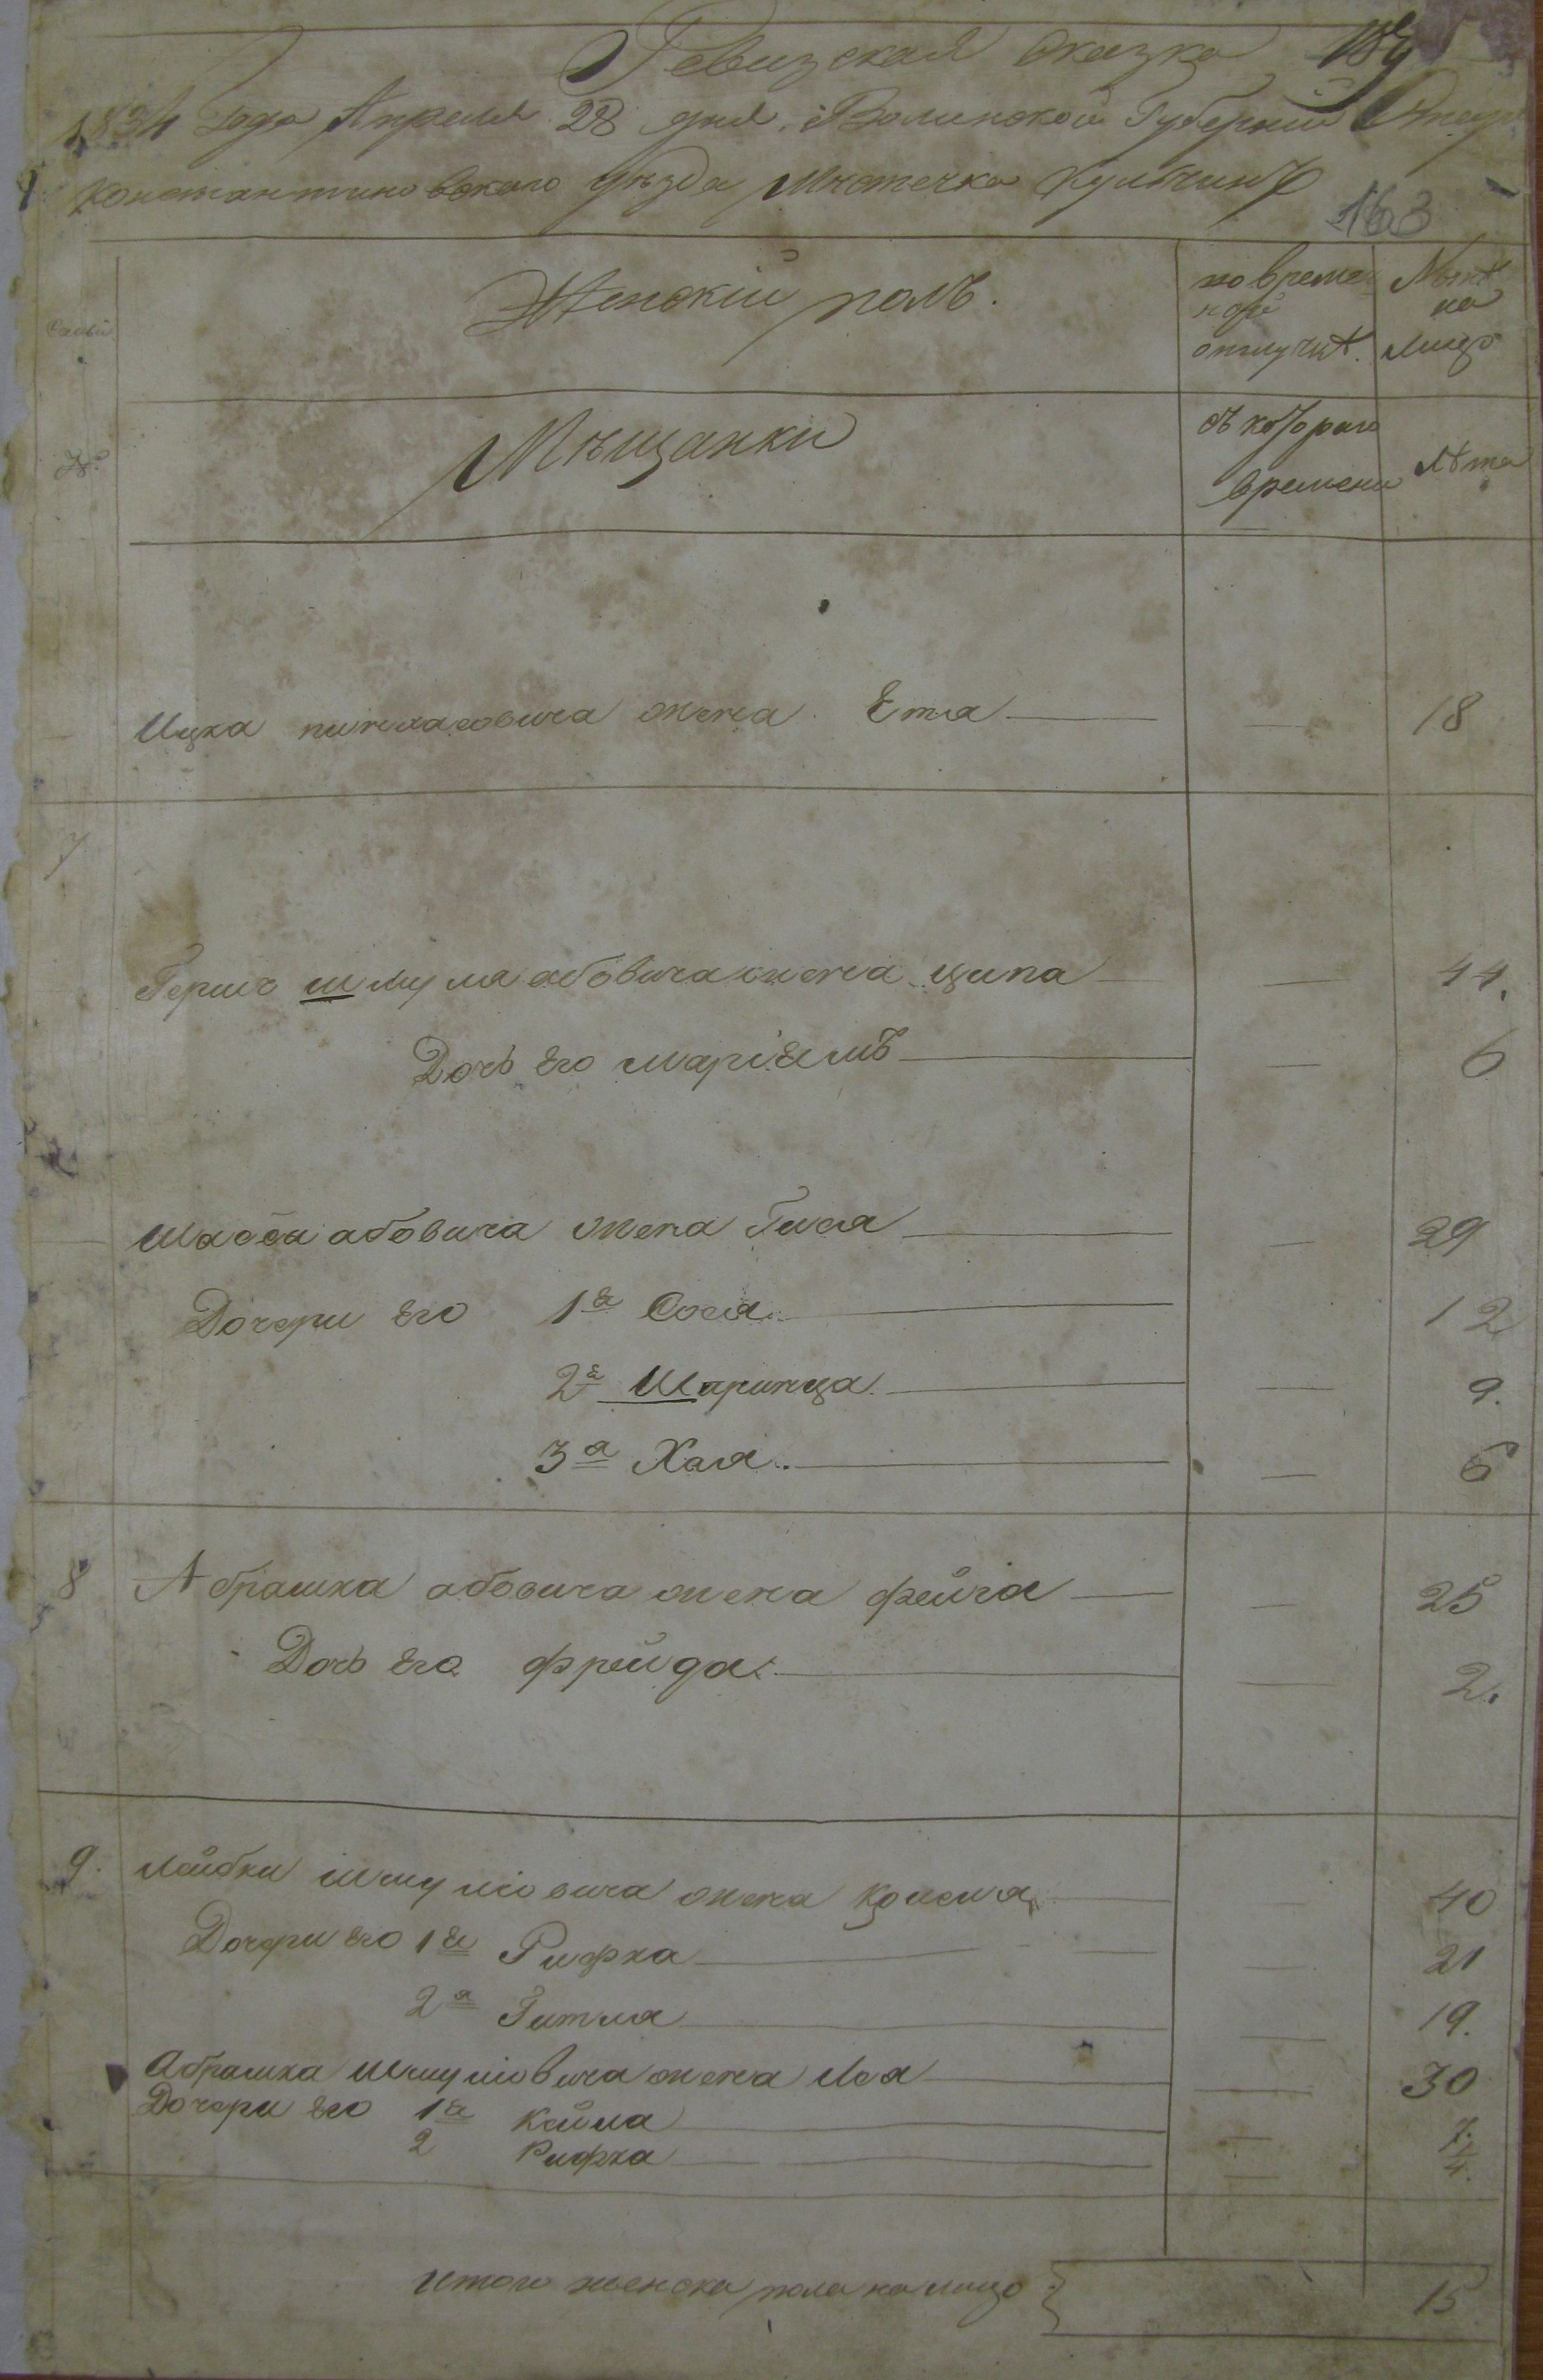 Ревизская сказка 189
1834 года Апреля 28 дня, Волинской Губернии Старо
Константиновского уѣзда Мѣстечка Кульчинъ
163
Женскій полъ. по време- Нынѣ
нной на
Семьи отлучкѣ. Лицо
Мѣщанки съ котораго Лѣта
№ времени
Ицка пинхасовича жена Етя — — 18
7
Герша шмуля абовича жена ципа — — 44.
Дочь Его маріемъ — — 6
абовича жена Гися — — 29
Дочери Его 1я Сося — 12
2я Шпринца — — 9.
3я Хая — — 6
8 Абрашка абовича жена фейга — — 25
Дочь Его фрейда — — 2.
9. Лейбки Шмулiовича жена — — 40
Дочери Его 1я Рифка — — 21
2я Гитля — — 19.
Абрашка Шмулiовича жена Лея — — 30
Дочери Его 1я Кейла — — 7.
2 Рифка — — 4.
Итого женска пола на лицо 15